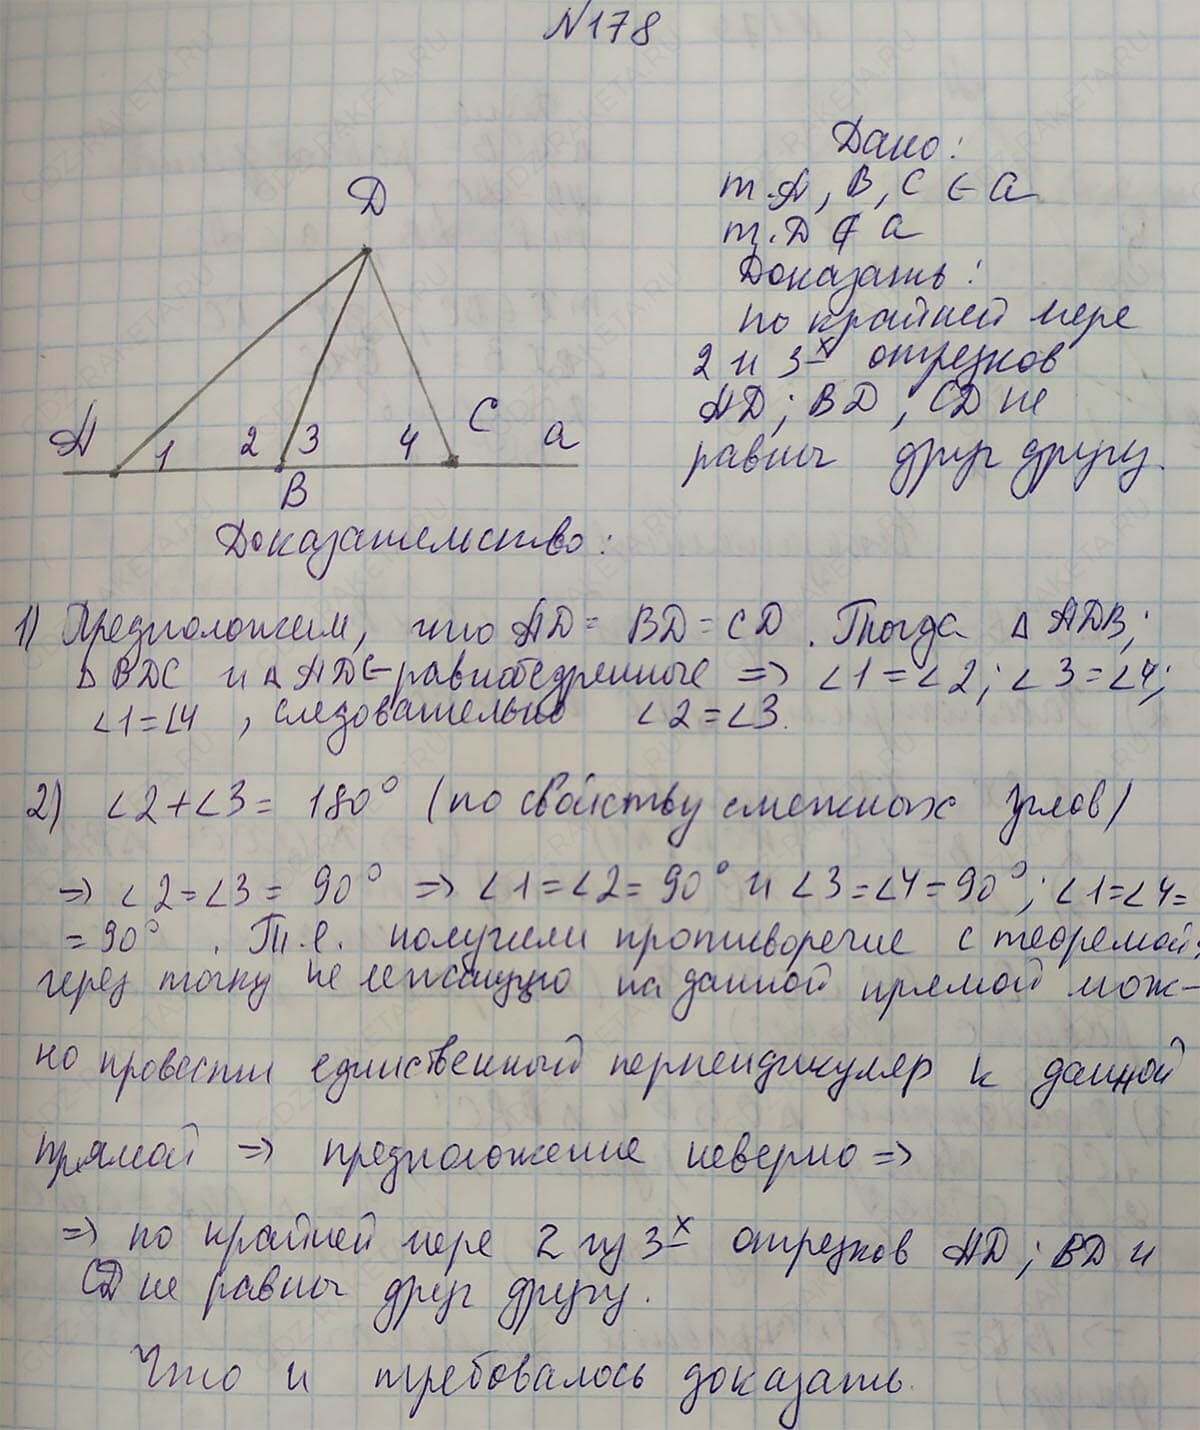 N178
Д
Дано:
т.А, В, С ∈ а
т.Д ∉ а
Доказать:
по крайней мере
2 и 3х отрезков
АД; ВД; СД не
равны друг другу.
А 1 2 3 4 С а
В
Доказательство:
1) Предположим, что АД = ВД = СД. Тогда Δ АДВ;
Δ ВДС и Δ АДС-равнобедренные => ∠1 = ∠2; ∠3 = ∠4;
∠1 = ∠4, следовательно ∠2 = ∠3.
2) ∠2 + ∠3 = 180° (по свойству смежных углов)
=> ∠2 = ∠3 = 90° => ∠1 = ∠2 = 90° и ∠3 = ∠4 = 90°; ∠1 = ∠4 =
= 90°. Т.е. получили противоречие с теоремой:
через точку не лежащую на данной прямой мож-
но провести единственный перпендикуляр к данной
прямой => предположение неверно =>
=> по крайней мере 2 из 3х отрезков АД; ВД и
СД не равны друг другу.
Что и требовалось доказать.